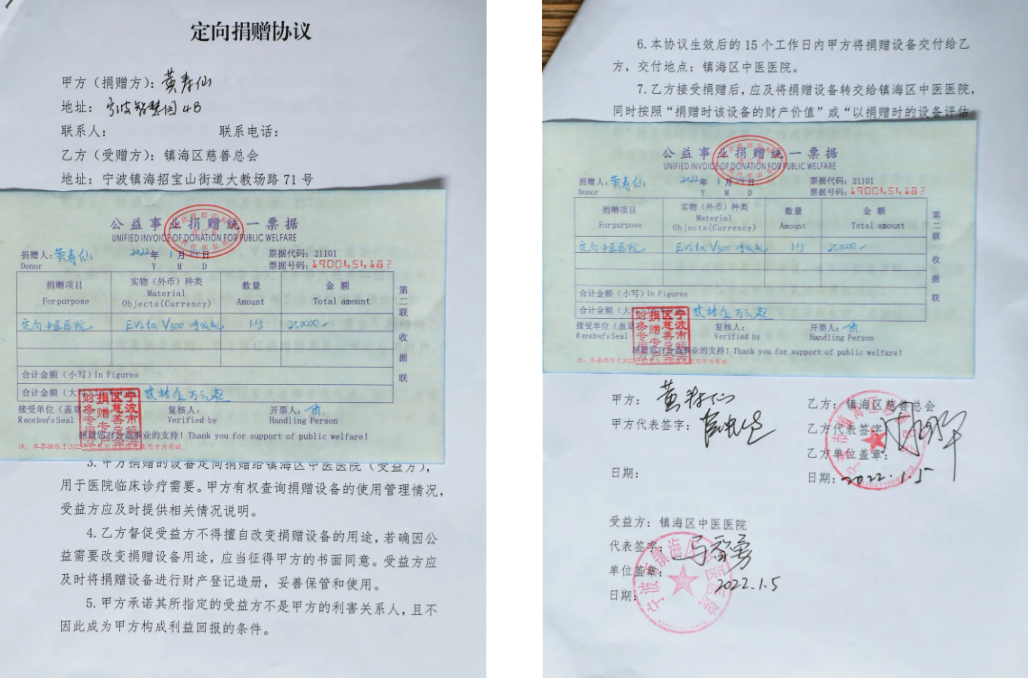 定向捐赠协议
甲方（捐赠方）：黄寿仙
地址：
联系人： 联系电话：
乙方（受赠方）：镇海区慈善总会
地址：宁波镇海招宝山街道大教场路 71 号
公益事业捐赠统一票据
UNIFIED INVOICE OF DONATION FOR PUBLIC WELFARE
捐赠人：黄寿仙
Donor
2022年 1月 日
Y M D
票据代码：21101
票据号码：1900454182
捐赠项目 实物（外币）种类 数量 金 额
Forpurpose Material Objects(Currency) Amount Total amount
定向中医医院 Evita V300 呼吸机 1台 250000
合计金额（小写）In Figures
合计金额（大 贰拾伍万元整
接受单位（盖章 复核人： 开票人：
Receiver's Seal Verified by Handling Person
感谢您对公益事业的支持！Thank you for support of public welfare!
第二联 收据联
3. 甲方捐赠的设备定向捐赠给镇海区中医医院（受益方），
用于医院临床诊疗需要。甲方有权查询捐赠设备的使用管理情况，
受益方应及时提供相关情况说明。
4. 乙方督促受益方不得擅自改变捐赠设备的用途，若确因公
益需要改变捐赠设备用途，应当征得甲方的书面同意。受益方应
及时将捐赠设备进行财产登记造册，妥善保管和使用。
5. 甲方承诺其所指定的受益方不是甲方的利害关系人，且不
因此成为甲方构成利益回报的条件。
6. 本协议生效后的 15 个工作日内甲方将捐赠设备交付给乙
方，交付地点：镇海区中医医院。
7. 乙方接受捐赠后，应及将捐赠设备转交给镇海区中医医院，
同时按照“捐赠时该设备的财产价值”或“以捐赠时的设备评估
公益事业捐赠统一票据
UNIFIED INVOICE OF DONATION FOR PUBLIC WELFARE
捐赠人：黄寿仙
Donor
2022年 1月 日
Y M D
票据代码：21101
票据号码：1900454182
捐赠项目 实物（外币）种类 数量 金 额
Forpurpose Material Objects(Currency) Amount Total amount
定向中医医院 Evita V300 呼吸机 1台 250000
合计金额（小写）In Figures
合计金额（大 贰拾伍万元整
接受单位（盖章 复核人： 开票人：
Receiver's Seal Verified by Handling Person
感谢您对公益事业的支持！Thank you for support of public welfare!
第二联 收据联
甲方：黄寿仙 乙方：镇海区慈善总会
甲方代表签字： 乙方代表签字：
乙方单位盖章：
日期： 日期：2022.1.5
受益方：镇海区中医医院
代表签字：
单位盖章：
日期：2022.1.5